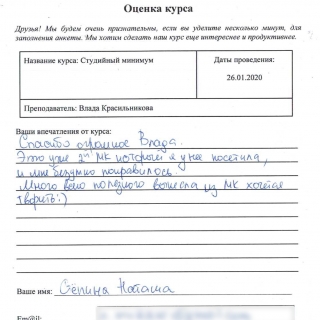 Оценка курса
Друзья! Мы будем очень признательны, если вы уделите несколько минут, для
заполнения анкеты. Мы хотим сделать наш курс еще интереснее и продуктивнее.
Название курса: Студийный минимум
Даты проведения:
26.01.2020
Преподаватель: Влада Красильникова
Ваши впечатления от курса:
Спасибо огромное Влада.
Это уже 2й МК который я у нее посетила,
и мне безумно понравилось.
Много всего полезного вынесла из МК хочется
творить:)
Ваше имя: Наташа
Em@il: